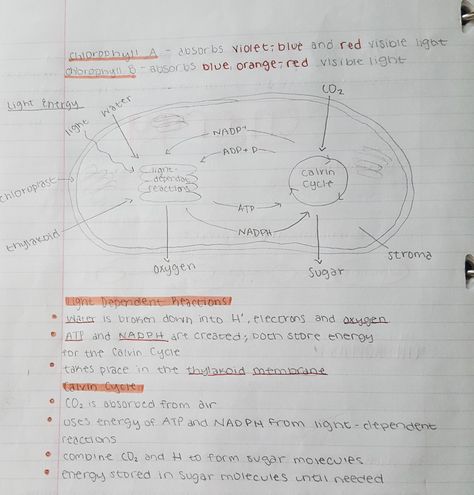 chlorophyll A - absorbs violet; blue and red visible light
chlorophyll B - absorbs blue, orange; red visible light
Light Energy
water
light
CO₂
NADP⁺
ADP + P
light-
dependent
reactions
Calvin
Cycle
chloroplast
ATP
NADPH
thylakoid
stroma
oxygen
sugar
Light Dependent Reactions
• Water is broken down into H⁺, electrons and oxygen
• ATP and NADPH are created; both store energy
for the Calvin Cycle
• takes place in the thylakoid membrane
Calvin Cycle
• CO₂ is absorbed from air
• uses energy of ATP and NADPH from light-dependent
reactions
• combine CO₂ and H to form sugar molecules
• energy stored in sugar molecules until needed